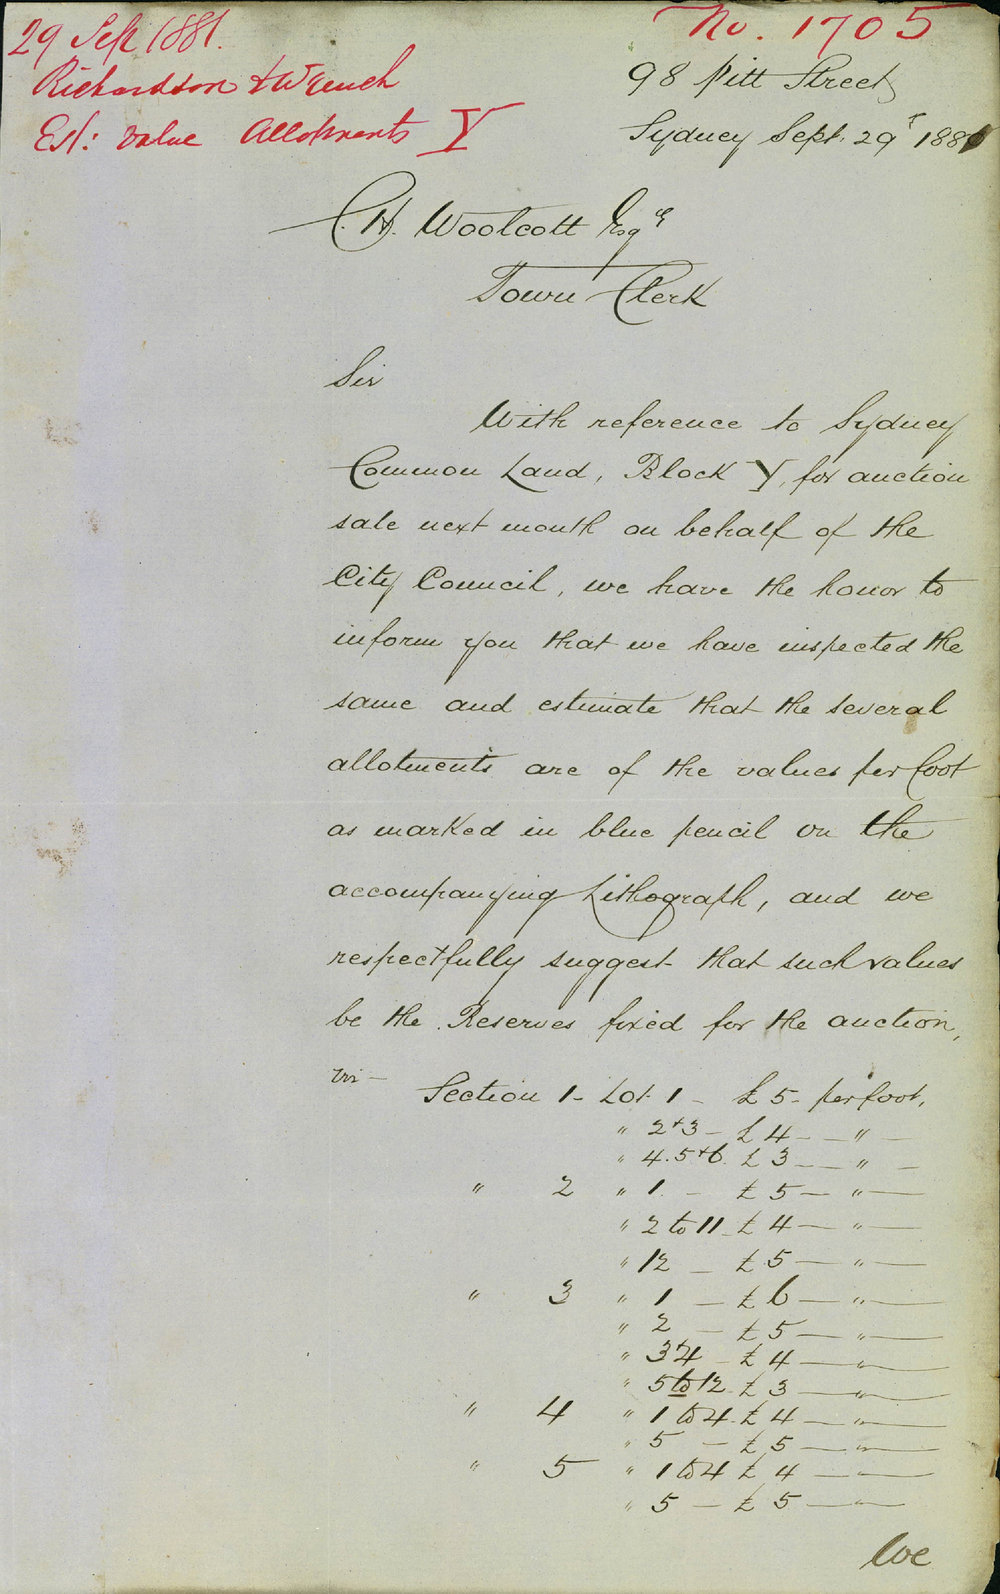 29 Sep 1881.
Richardson & Wrench
Est: value Allotments Y
No. 1705
98 Pitt Street
Sydney Sept. 29th 1881
C. H. Woolcott Esqre
Town Clerk
Sir
With reference to Sydney
Common Land, Block Y, for auction
sale next month on behalf of the
City Council, we have the honor to
inform you that we have inspected the
same and estimate that the several
allotments are of the values per foot
as marked in blue pencil on the
accompanying Lithograph, and we
respectfully suggest that such values
be the Reserves fixed for the auction,
viz—
Section 1 - Lot 1 - £5 - per foot,
" 2 + 3 - £4 - "
" 4. 5 + 6. £3 - "
" 2 " 1 - £5 - "
" 2 to 11 - £4 - "
" 12 - £5 - "
" 3 " 1 - £6 - "
" 2 - £5 - "
" 3 + 4 - £4 - "
" 5 to 12 - £3 - "
" 4 " 1 to 4 - £4 - "
" 5 - £5 - "
" 5 " 1 to 4 £4 - "
" 5 - £5 - "
We